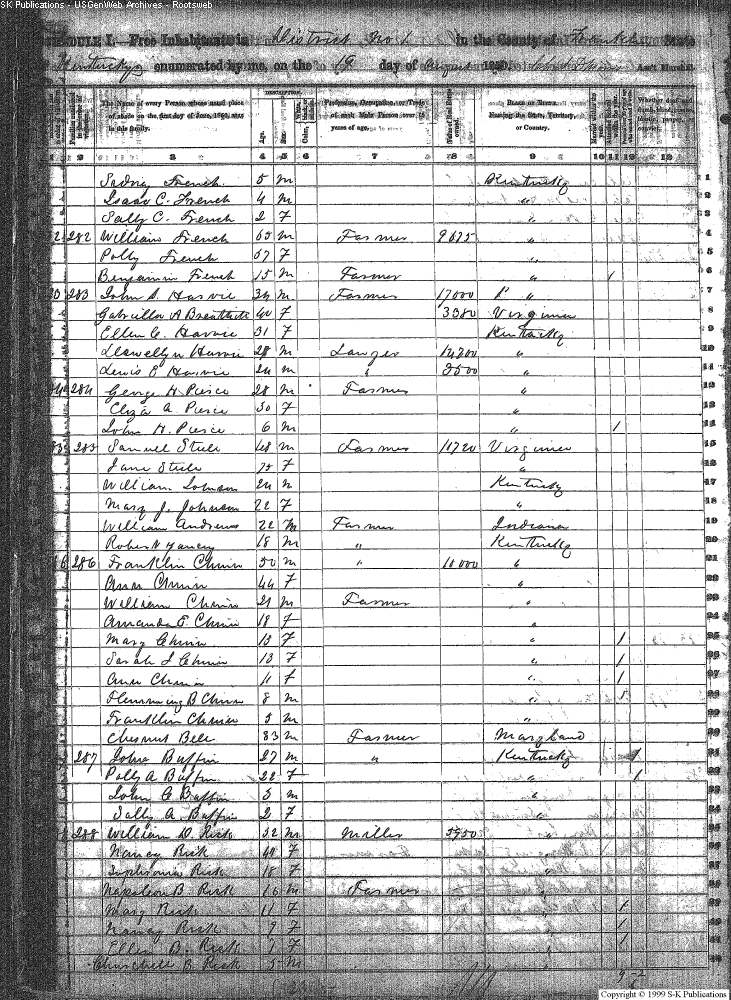 SK Publications - USGenWeb Archives - Rootsweb
DULE I.—Free Inhabitants in District No 1 in the County of Frankl State
Kentucky enumerated by me, on the 19 day of August 1850. Ass't Marshal.
The Name of every Person whose usual place of abode on the first day of June, 1850, was in this family.
DESCRIPTION.
Age.
Sex.
Profession, Occupation, or Trade of each Male Person over 15 years of age.
Value of Real Estate owned.
Place of Birth. Naming the State, Territory, or Country.
Whether deaf and dumb, blind, insane, idiotic, pauper, or convict.
1 2 3 4 5 6 7 8 9 10 11 12 13
French 5 m Kentucky 1
Isaac C. French 4 m " 2
Sally C. French 2 F " 3
282 William French 65 m Farmer 9675 " 4
Polly French 57 F " 5
Benjamin French 15 m Farmer " 1 6
283 John S. Harvie 34 m Farmer 17000 " 7
Gabriella A Breathitt 40 F 3380 Virginia 8
Ellen C. Harvie 31 F Kentucky 9
Llewellyn Harvie 28 m Lawyer 14200 " 10
Lewis E Harvie 24 m " 2500 " 11
284 George H Pierce 28 m Farmer " 12
Eliza A Pierce 30 F " 13
John H. Pierce 6 m " 1 14
285 Samuel Steele 48 m Farmer 11720 Virginia 15
Jane Steele 75 F " 16
William Johnson 24 m Kentucky 17
Mary J. Johnson 22 F " 18
William Andrews 22 m Farmer Indiana 19
Robert Yancey 18 m " Kentucky 20
286 Franklin Chinn 50 m " 10000 " 21
Ann Chinn 44 F " 22
William Chinn 21 m Farmer " 23
Amanda F. Chinn 18 F " 24
Mary Chinn 15 F " 1 25
Sarah J Chinn 13 F " 1 26
Ann Chinn 11 F " 1 27
Flemming B Chinn 8 m " 1 28
Franklin Chinn 5 m " 29
Chesnut Bell 83 m Farmer Maryland 30
287 John Buffin 27 m " Kentucky 1 31
Polly A Buffin 22 F " 1 32
John G Buffin 3 m " 33
Sally A Buffin 2 F " 34
288 William D. Risk 52 m Miller 5950 " 35
Nancy Risk 40 F " 36
Risk 18 F " 37
Napoleon B Risk 16 m Farmer " 38
Mary Risk 11 F " 1 39
Nancy Risk 9 F " 1 40
Ellen B. Risk 7 F " 1 41
Churchill B Risk 5 m 42
Copyright © 1999 S-K Publications